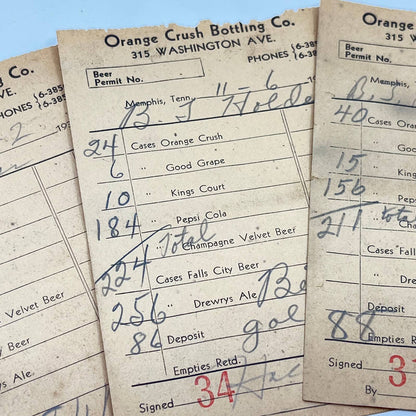 Co.
AVE.
PHONES {6-385
{6-38
2, 19
Velvet Beer
Beer
Ale.
Orange Crush Bottling Co.
315 WASHINGTON AVE.
Beer
Permit No.
PHONES {6-385
{6-38
Memphis, Tenn. 11-6 19
B. J Holde
24 Cases Orange Crush
6 " Good Grape
10 " Kings Court
184 " Pepsi Cola
Total Champagne Velvet Beer
224 Cases Falls City Beer
256 " Drewrys Ale
86 Deposit
Empties Retd.
Signed 34
Orange Cru
315 WASH
Beer
Permit No.
Memphis,
B.
40 Cases Orang
" Go
15 " Kin
156 " Pep
211 total Cha
Cases Fall
" Dre
88 Deposit
Empties
Signed 3
By